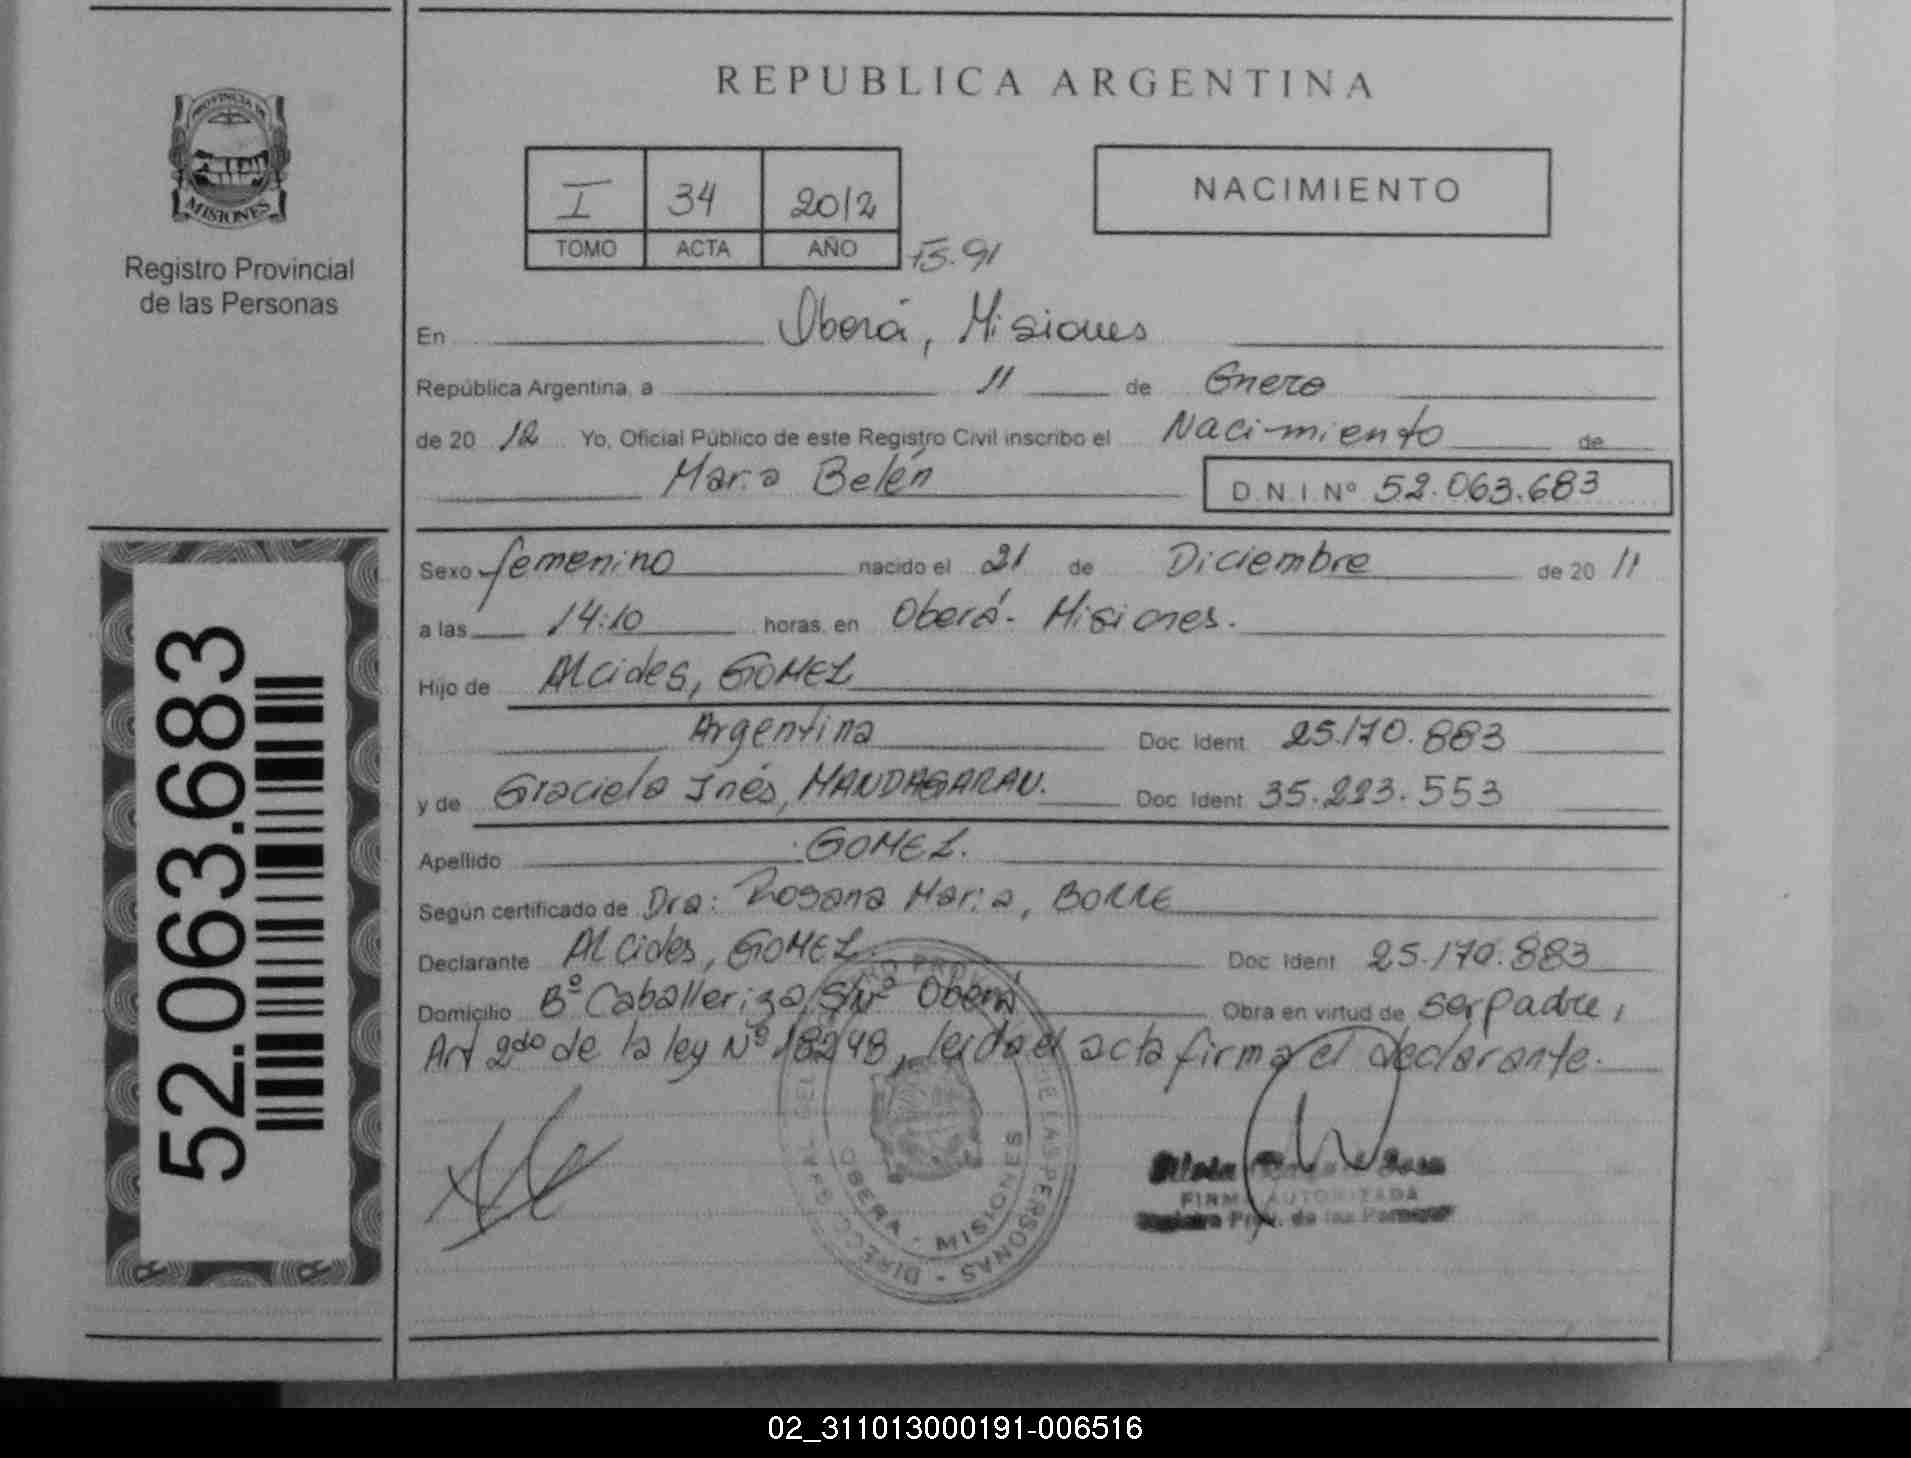 REPUBLICA ARGENTINA
PROVINCIA DE
MISIONES
Registro Provincial
de las Personas
I 34 2012
TOMO ACTA AÑO
Fs. 91
NACIMIENTO
En Oberá, Misiones
República Argentina, a 11 de Enero
de 20 12 Yo, Oficial Público de este Registro Civil inscribo el Nacimiento de
Maria Belén D.N.I.Nº 52.063.683
Sexo femenino nacido el 21 de Diciembre de 20 11
a las 14:10 horas, en Oberá - Misiones.
Hijo de Alcides, GOMEZ
Argentina Doc. Ident. 25.170.883
y de Graciela Inés, MANDAGARAN. Doc. Ident. 35.223.553
Apellido GOMEZ.
Según certificado de Dra: Rosana Maria, BORRE
Declarante Alcides, GOMEZ Doc. Ident. 25.170.883
Domicilio Bº Caballeriza S/Nº Oberá Obra en virtud de ser padre,
Art 2do de la ley Nº 18248, leida el acta firma el declarante.
DE LAS PERSONAS - DIRECC
OBERA - MISIONES
FIRMA AUTORIZADA
Prov. de las Personas
52.063.683
02_311013000191-006516